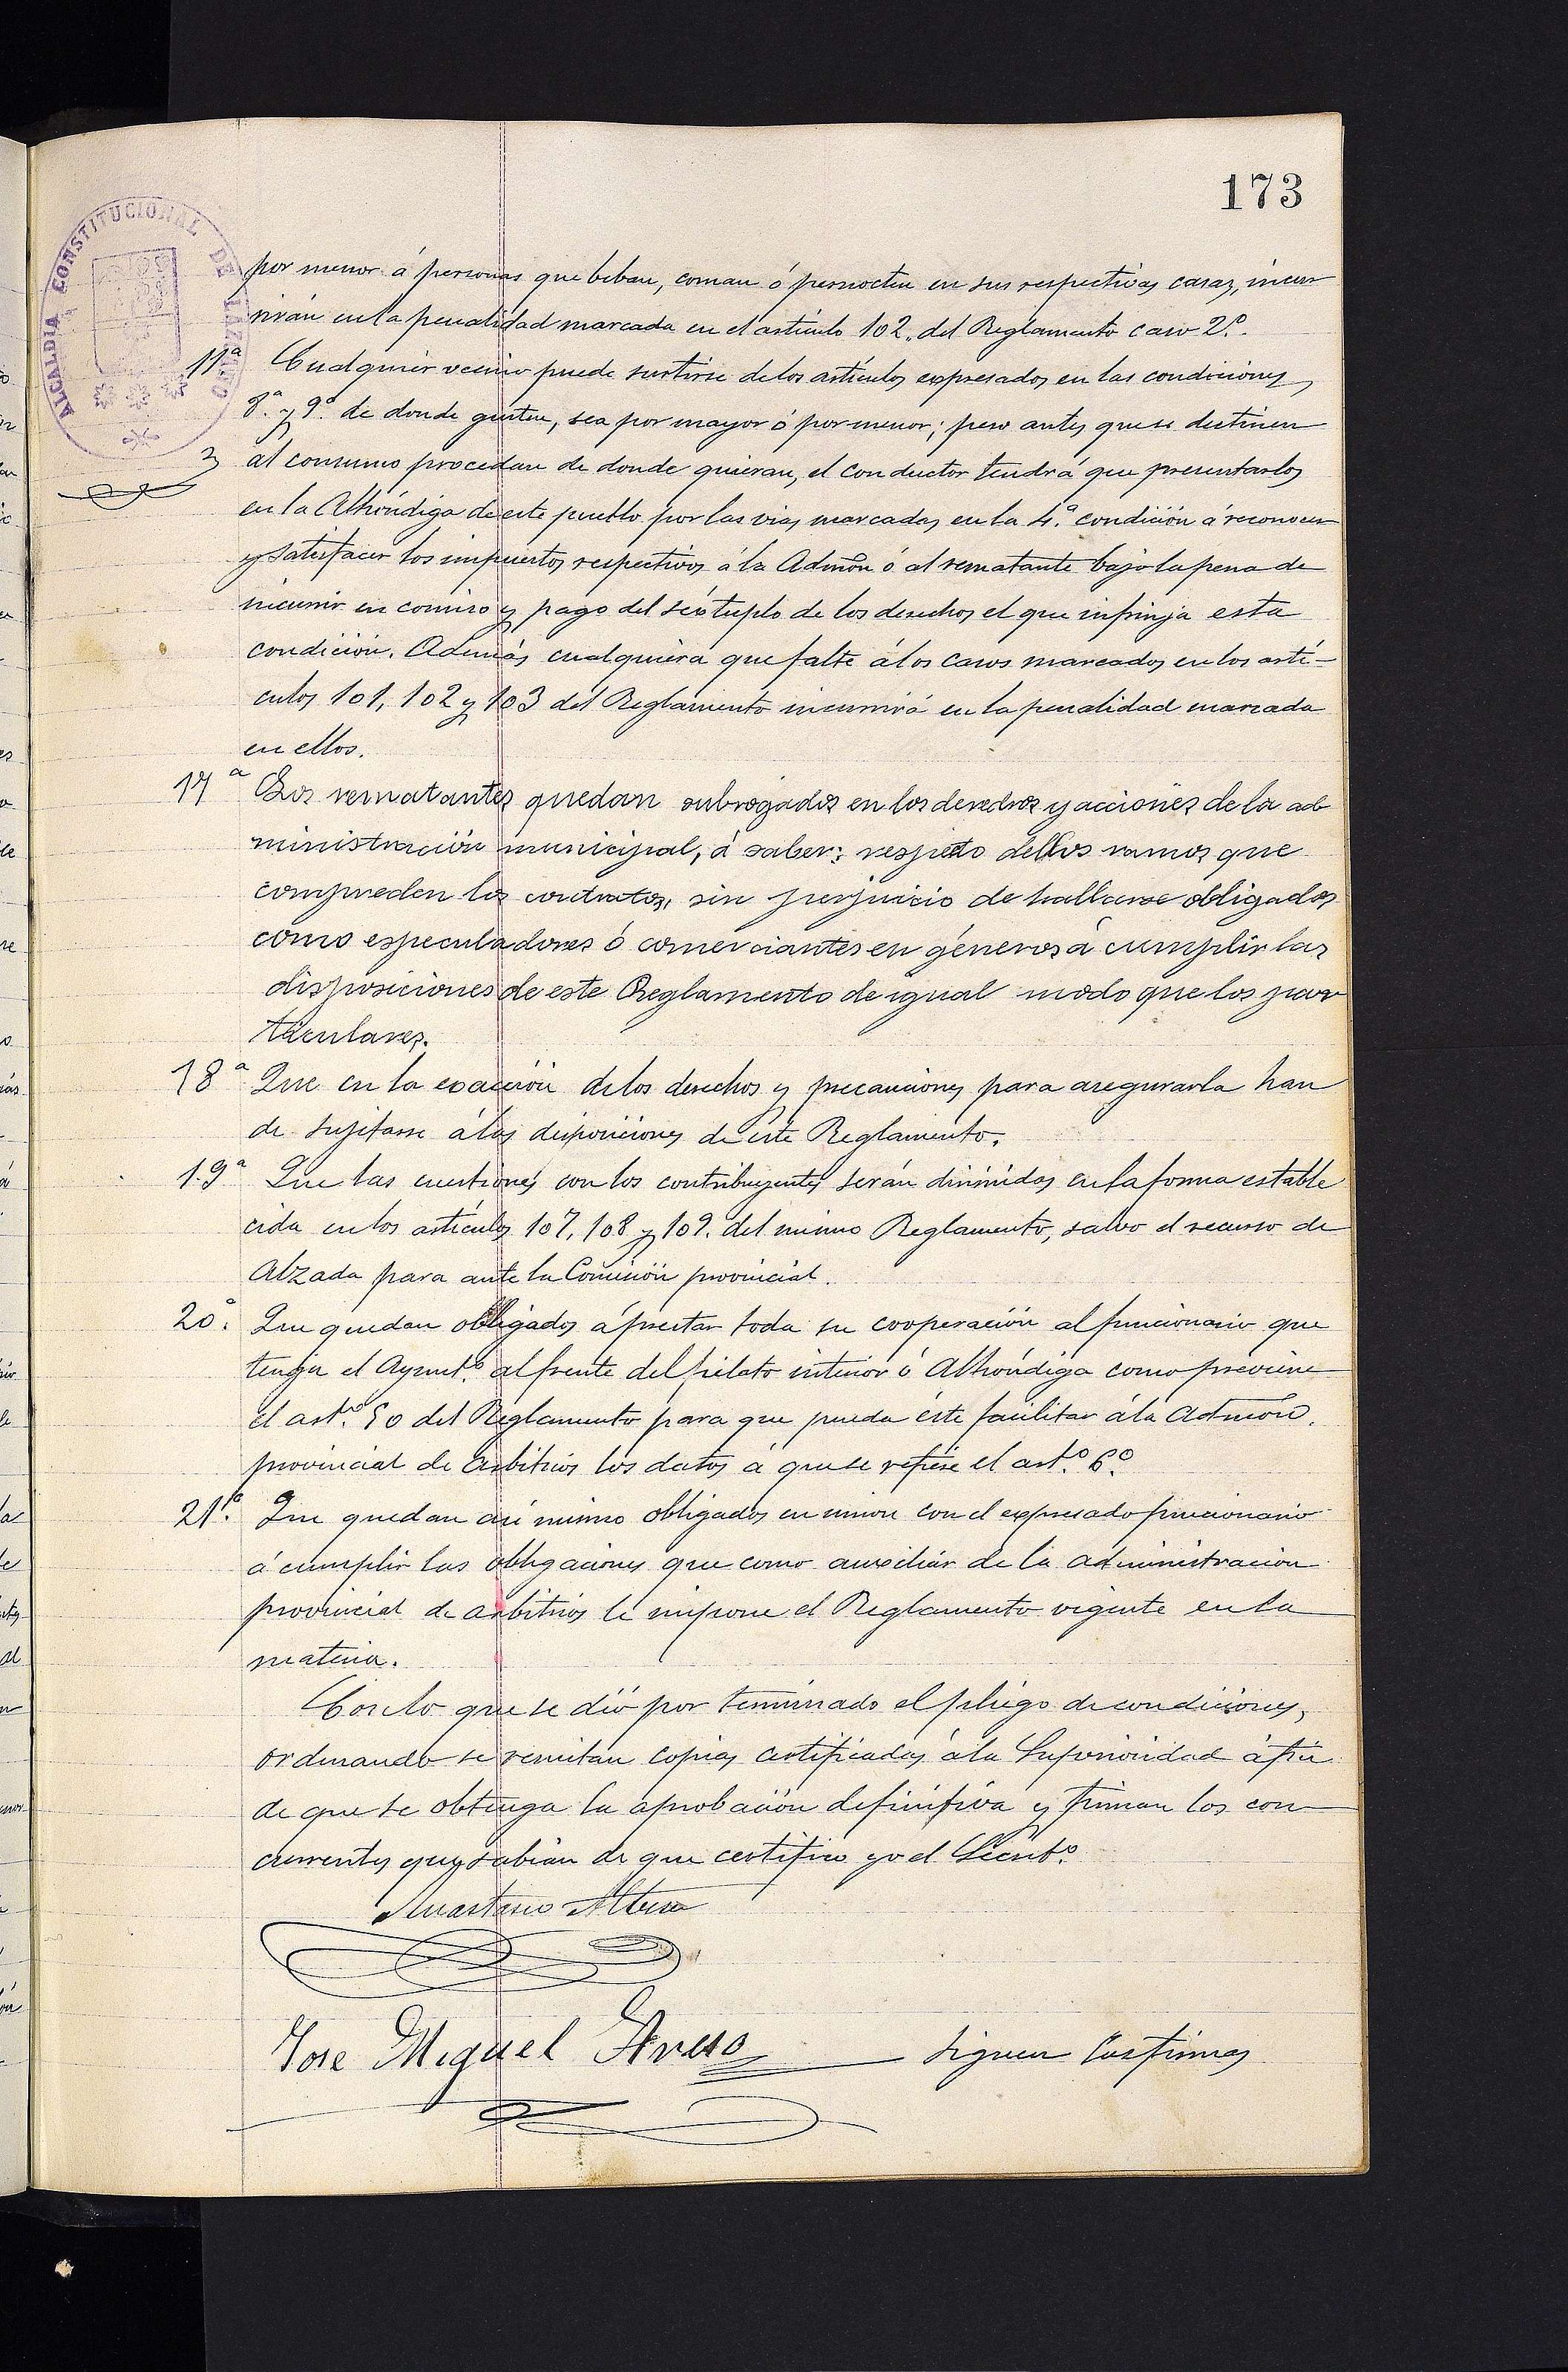 173
ALCALDIA CONSTITUCIONAL DE
por menor á personas que beban, coman ó pernocten en sus respectivas casas, incur
rirán en la penalidad marcada en el artículo 102, del Reglamento caso 2º.
11ª Cualquier vecino puede surtirse de los artículos expresados en las condiciones
8ª y 9ª de donde gusten, sea por mayor ó por menor; pero antes que se destinen
al consumo procedan de donde quieran, el conductor tendrá que presentarlos
en la Alhóndiga de este pueblo por las vias marcadas en la 4.ª condición á reconocer
y satisfacer los impuestos respectivos á la Admón ó al rematante bajo la pena de
incurrir en comiso y pago del séxtuplo de los derechos el que infrinja esta
condición. Además cualquiera que falte á los casos marcados en los artí-
culos 101, 102 y 103 del Reglamento incurrirá en la penalidad marcada
en ellos.
17ª Los rematantes quedan subrogados en los derechos y acciones de la ad
ministración municipal, á saber: respecto de los ramos que
compreden los contratos, sin perjuicio de hallarse obligados
como especuladores ó comerciantes en géneros á cumplir las
disposiciones de este Reglamento de igual modo que los par
ticulares.
18ª Que en la exacción de los derechos y precauciones para asegurarla han
de sujetarse á las disposiciones de este Reglamento.
19ª Que las cuestiones con los contribuyentes serán dirimidas en la forma estable
cida en los artículos 107, 108 y 109. del mismo Reglamento, salvo el recurso de
Alzada para ante la Comisión provincial.
20ª. Que quedan obligados á prestar toda su cooperación al funcionario que
tenga el Ayunt.º al frente del fielato interior ó Alhóndiga como previene
el art.º 50 del Reglamento para que pueda éste facilitar á la Admón.
provincial de Arbitrios los datos á que se refiere el art.º 6.º
21ª. Que quedan así mismo obligados en union con el expresado funcionario
á cumplir las obligaciones que como auxiliar de la administracion
provincial de arbitrios le impone el Reglamento vigente en la
materia.
Con lo que se dió por terminado el pliego de condiciones,
ordenando se remitan copias certificadas á la Superioridad á fin
de que se obtenga la aprobación definitiva y firman los con
currentes que sabían de que certifico yo el Secret.º
Anastasio Altuna
Jose Miguel siguen las firmas